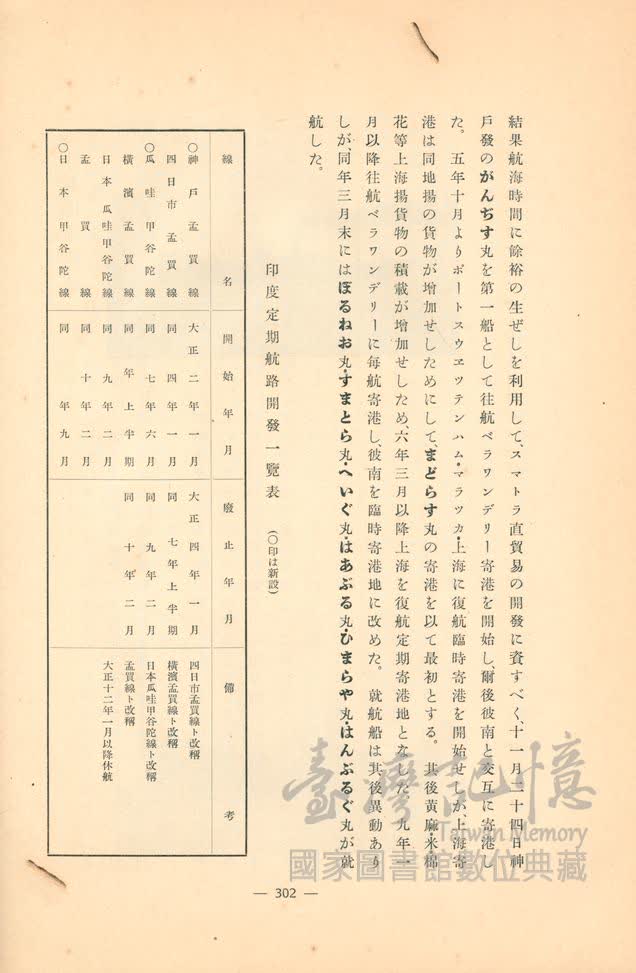 結果航海時間に餘裕の生ぜしを利用して、スマトラ直貿易の開發に資すべく、十一月二十四日神
戶發のがんぢす丸を第一船として往航ベラワンデリー寄港を開始し、爾後彼南と交互に寄港し
た。 五年十月よりポートスウエツテンハム・マラツカ・上海に復航臨時寄港を開始せしが、上海寄
港は同地揚の貨物が增加せしためにして、まどらす丸の寄港を以て最初とする。 其後黃麻・米・棉
花等上海揚貨物の積載が增加せしため、六年三月以降上海を復航定期寄港地となした。 九年一
月以降往航ベラワンデリーに每航寄港し、彼南を臨時寄港地に改めた。 就航船は其後異動あり
しが、同年三月末にはぼるねお丸・すまとら丸・へいぐ丸・はあぶる丸・ひまらや丸・はんぶるぐ丸が就
航した。
印度定期航路開發一覽表 (〇印は新設)
線名 開始年月 廢止年月 備考
〇神戶孟買線 大正二年一月 大正四年一月 四日市孟買線ト改稱
四日市孟買線 同四年一月 同七年上半期 橫濱孟買線ト改稱
〇瓜哇甲谷陀線 同七年六月 同九年二月 日本瓜哇甲谷陀線ト改稱
橫濱孟買線 同年上半期 同十年二月 孟買線ト改稱
日本瓜哇甲谷陀線 同九年二月 大正十二年一月以降休航
孟買線 同十年二月
〇日本甲谷陀線 同年九月
— 302 —
臺灣記憶
Taiwan Memory
國家圖書館數位典藏